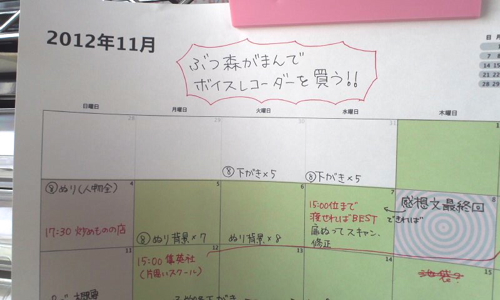 2012年11月
ぶつ森がまんで
ボイスレコーダーを買う!!
日曜日 月曜日 火曜日 水曜日 木曜日
⑧下がき×5
⑧下がき×5
4
⑧ぬり(人物全)
17:30
5
⑧ぬり背景×7
6
ぬり背景×8
7
15:00位まで
渡せればBEST
肩ぬってスキャン、
修正
8
感想文最終回
できれば
11
12
15:00 集英社
13
14
15
池袋?